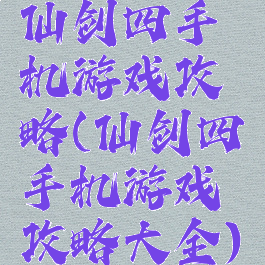 仙剑四手
机游戏攻
略(仙剑四
手机游戏
攻略大全)